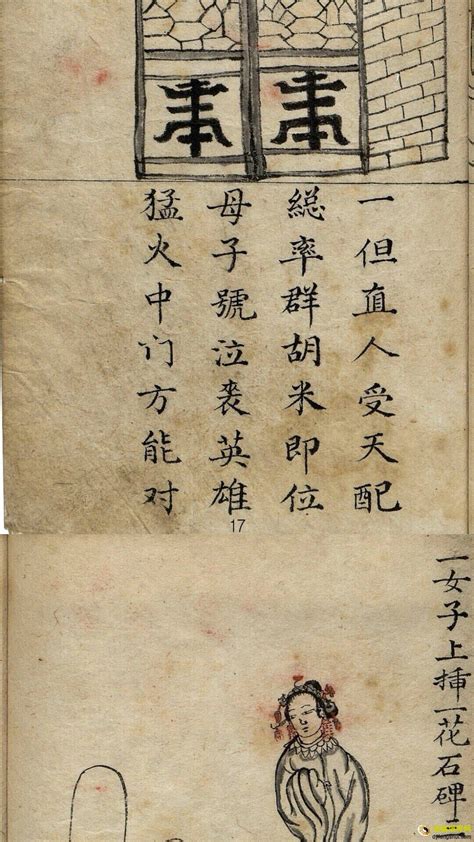 一但直人受天配
総率群胡米即位
母子號泣裘英雄
猛火中门方能对
17
一女子上挿一花石碑二